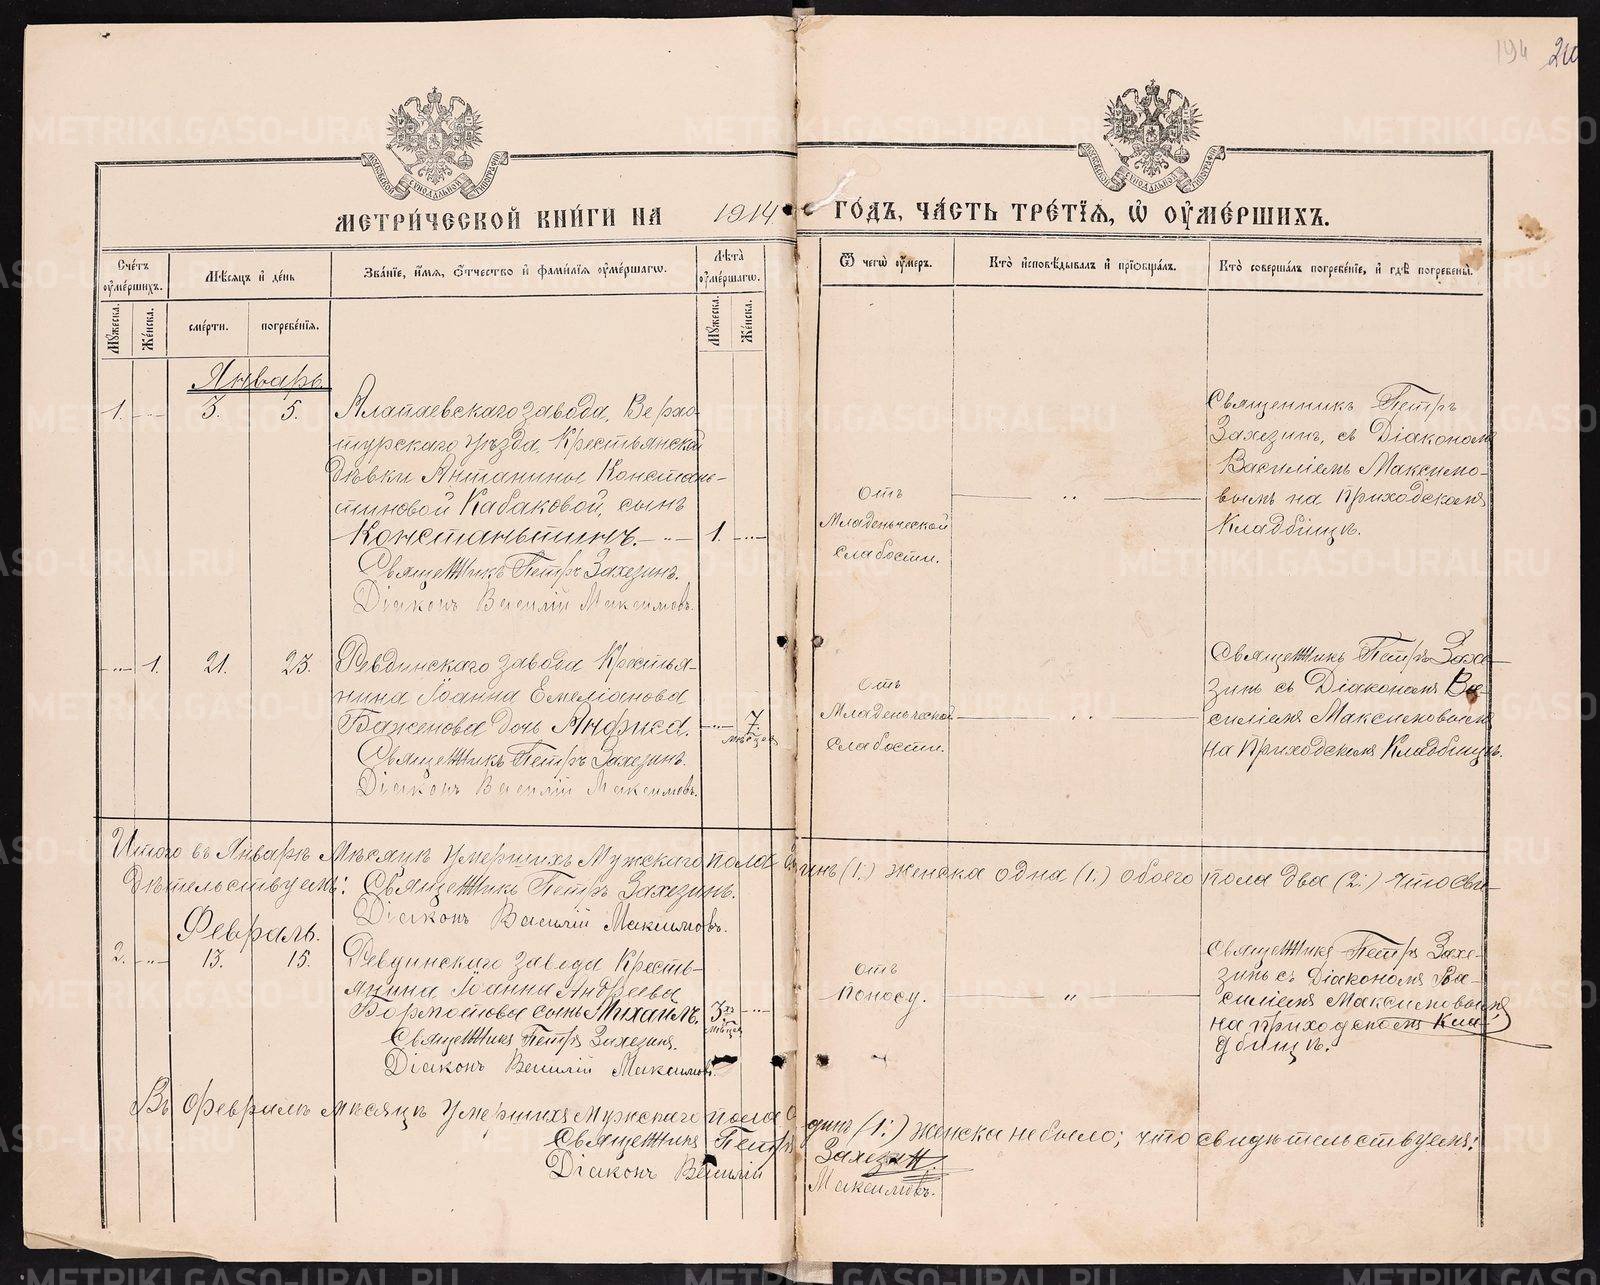 194 210
МЕТРИ́ЧЕСКОЙ КНИ́ГИ НА 1914 ГО́ДЪ, ЧА́СТЬ ТРЕ́ТІѦ, Ѡ҆ ОУ҆МЕ́РШИХЪ.
Сче́тъ оу҆ме́ршихъ.
Мѣ́сяцъ и҆ де́нь
Зва́нїе, и҆́мѧ, ѻ҆́тчество и҆ фами́лїѧ оу҆ме́ршагѡ.
Лѣ́та оу҆ме́ршагѡ.
Ѿ чегѡ̀ оу҆́меръ.
Кто̀ и҆сповѣ́дывалъ и҆ прїѡбща́лъ.
Кто̀ соверша́лъ погребе́нїе, и҆ гдѣ̀ погребены̀.
Мꙋ́жеска.
Же́нска.
сме́рти.
погребе́нїѧ.
Мꙋ́жеска.
Же́нска.
Январь.
1. -..- 3. 5.
Алапаевскаго завода, Верхо-
турскаго уѣзда, Крестьянской
дѣвки Антанины Констан-
тиновой Кабаковой, сынъ
Константинъ. -„- 1. -..-
Священникъ Петръ Захезинъ.
Діаконъ Василій Максимовъ.
Отъ
Младенческой
слабости.
— .. —
Священникъ Петръ
Захезинъ, съ Діакономъ
Василіемъ Максимо-
вымъ на приходскомъ
Кладбищѣ.
-..- 1. 21. 23.
Ревдинскаго завода Крестья-
нина Іоанна Емеліанова
Баженова дочь Анфиса. -..- 7 мѣсцев
Священникъ Петръ Захезинъ.
Діаконъ Василій Максимовъ.
Отъ
Младенческой
слабости.
— .. —
Священникъ Петръ Захе-
зинъ съ Діакономъ Ва-
силіемъ Максимовымъ
на Приходскомъ Кладбищѣ.
Итого въ Январѣ мѣсяцѣ умершихъ Мужскаго пола одинъ (1.) женска одна (1.) обоего пола два (2.) что сви-
дѣтельствуемъ: Священникъ Петръ Захезинъ.
Діаконъ Василій Максимовъ.
Февраль.
2. -..- 13. 15.
Ревдинскаго завода Кресть-
янина Іоанна Андреева
Бормотова сынъ Михаилъ. 3хъ мѣсцев -..-
Священникъ Петръ Захезинъ.
Діаконъ Василій Максимовъ.
Отъ
поносу.
— „ —
Священникъ Петръ Захе-
зинъ съ Діакономъ Ва-
силіемъ Максимовымъ
на приходскомъ Клад-
бищѣ.
Въ Февралѣ мѣсяцѣ умершихъ мужскаго пола одинъ (1.) женска не было; что свидѣтельствуемъ:
Священникъ Петръ Захезин.
Діаконъ Василій Максимовъ.